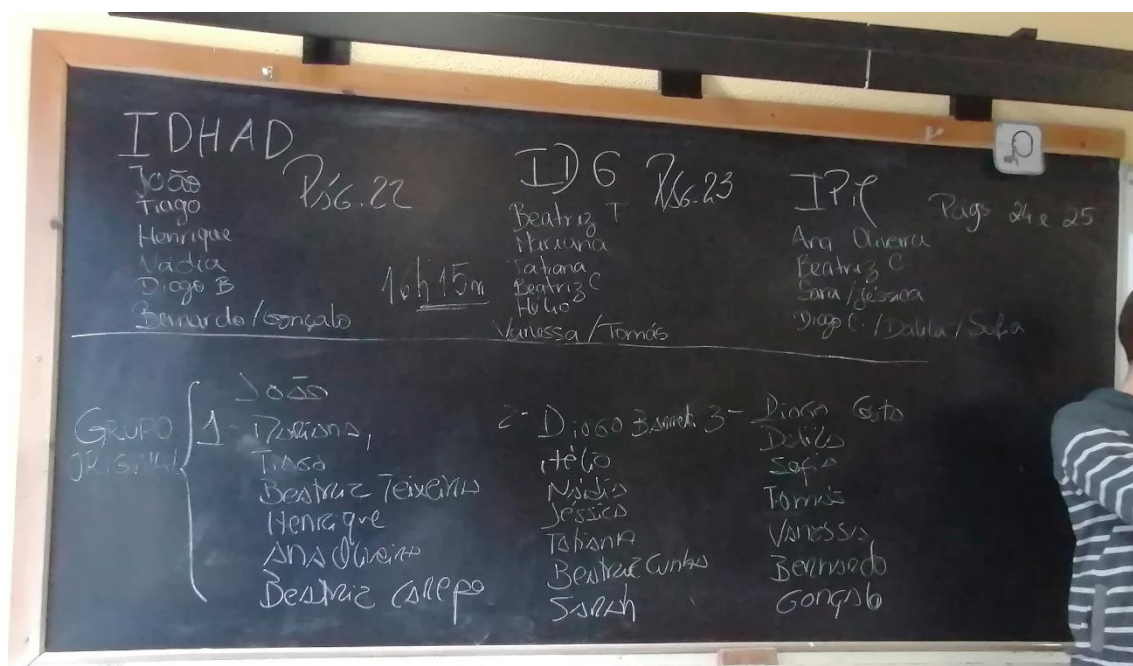 IDHAD
Pág. 22
João
Tiago
Henrique
Nádia
Diogo B
Bernardo/Gonçalo
16h 15m
ID6
Pág. 23
Beatriz T
Mariana
Tatiana
Beatriz C
Hélio
Vanessa/Tomás
Págs 24 e 25
Ana Oliveira
Beatriz C
Sara/Jéssica
Diogo C./Dalila/Sofia
GRUPO
ORIGINAL
1-
João
Mariana,
Tiago
Beatriz Teixeira
Henrique
Ana Oliveira
Beatriz Carepo
2-
Diogo
Hélio
Nádia
Jéssica
Tatiana
Beatriz Cunha
Sarah
3-
Diogo Costa
Dalila
Sofia
Tomás
Vanessa
Bernardo
Gonçalo